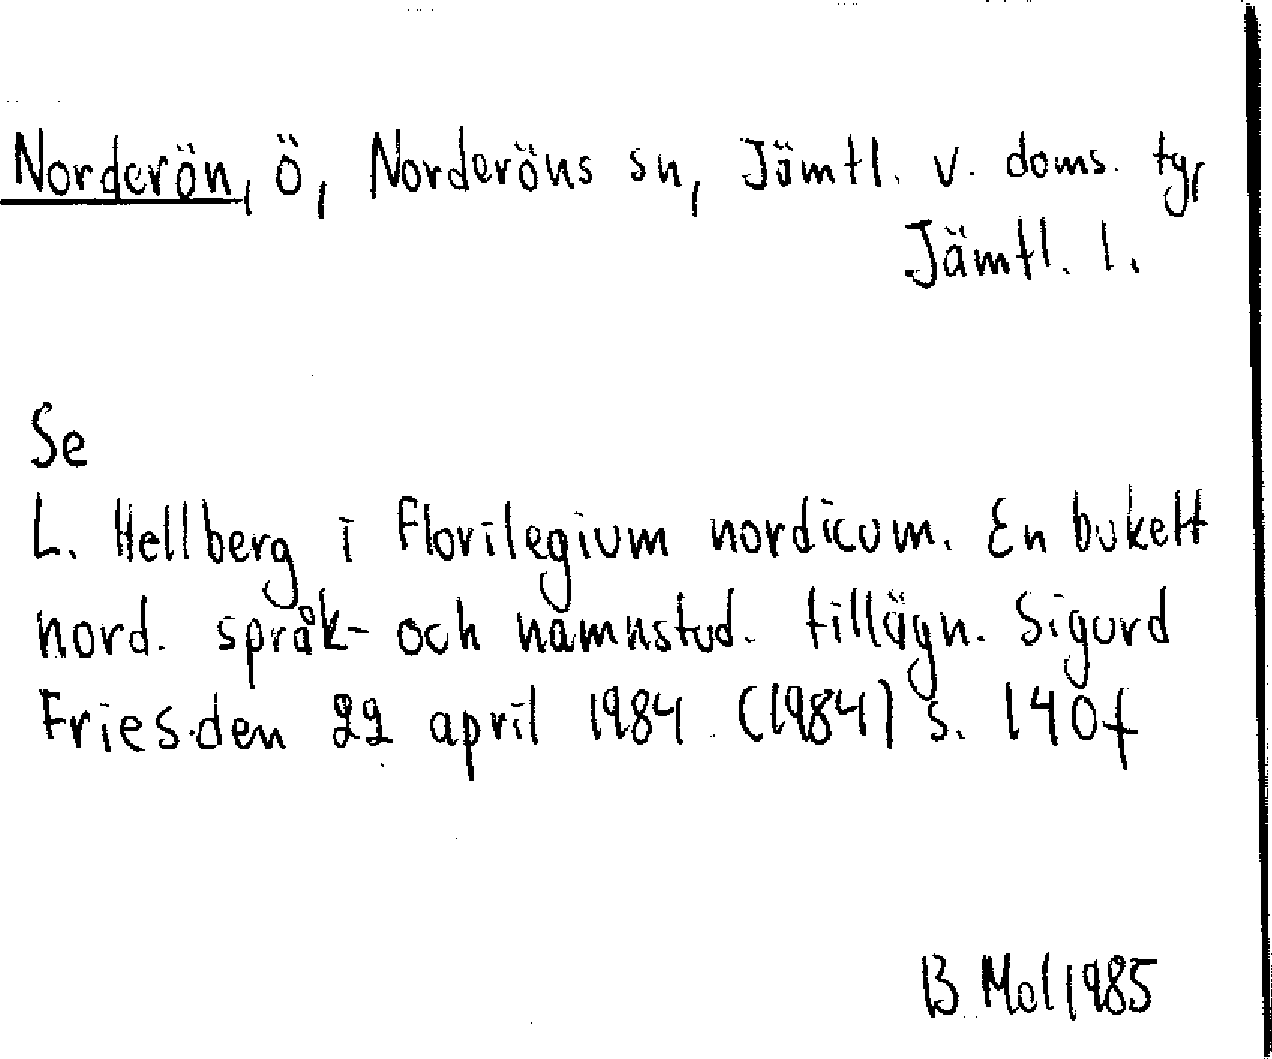 Norderön, ö, Norderöns sn, Jämtl. v. doms. ty,
Jämtl. l.
Se
L. Hellberg i Florilegium nordicum. En bukett
nord. språk- och namnstud. tillägn. Sigurd
Fries den 22 april 1984. (1984) s. 140f
B Mol 1985